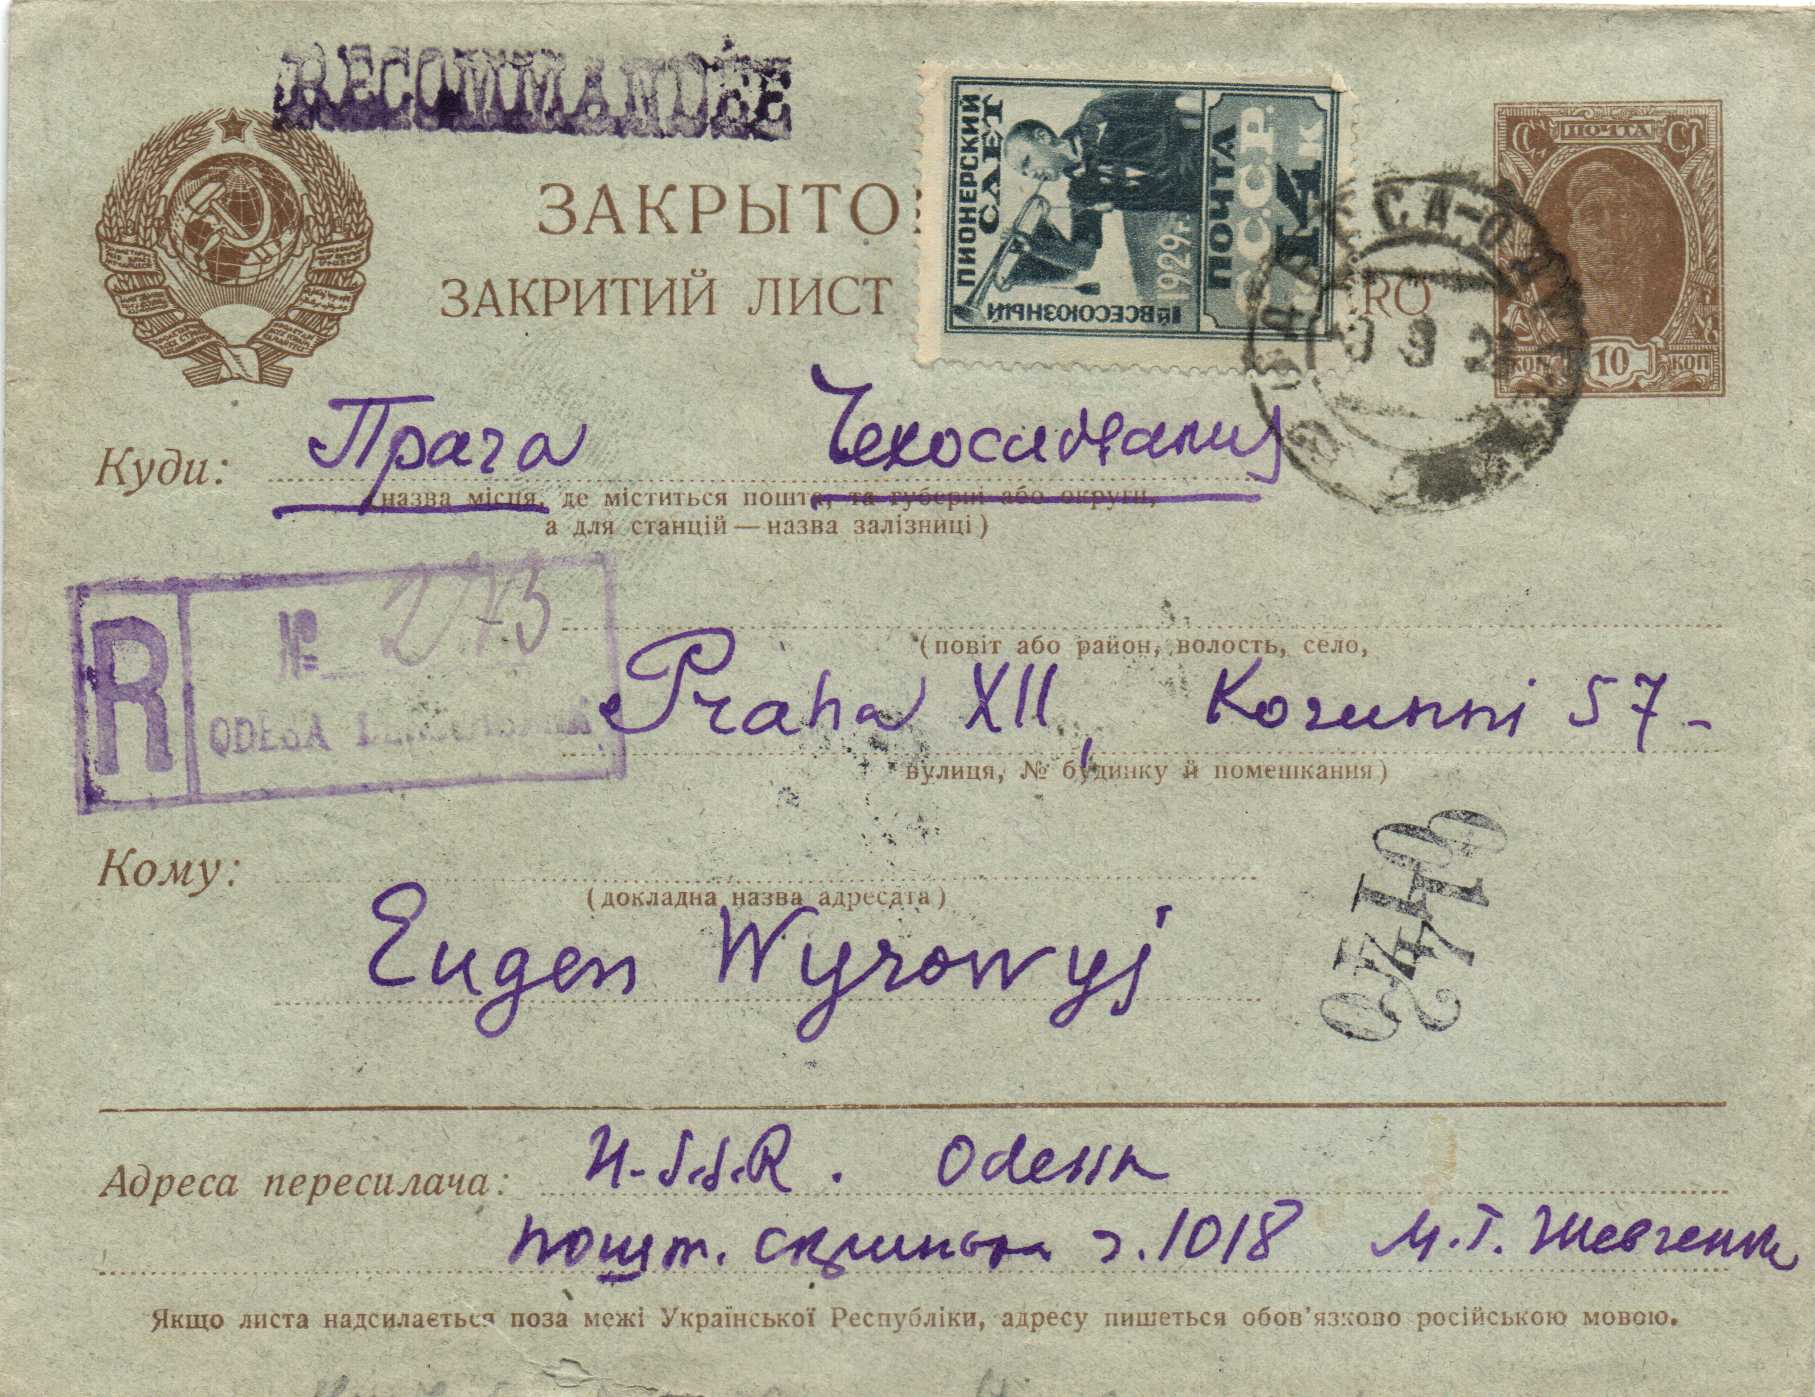 RECOMMANDÉE
ЗАКРЫТО
ЗАКРИТИЙ ЛИСТ
RO
ПИОНЕРСКИЙ
СЛЕТ
1й ВСЕСОЮЗНЫЙ
1929г.
ПОЧТА
С.С.С.Р.
14 К
ПОЧТА
КОП 10 КОП
Куди: Прага Чехословакия
(назва місця, де міститься пошта, та губерні або округи,
а для станцій — назва залізниці)
R № 273
ODESA
(повіт або район, волость, село,
Praha XII, Korunni 57-
вулиця, № будинку й помешкання)
Кому:
(докладна назва адресата)
Eugen Wyrowyj
Адреса пересилача: U.S.S.R. Odessa
пошт. скринька ч. 1018 М.Т. Шевченк
Якщо листа надсилається поза межі Української Республіки, адресу пишеться обов'язково російською мовою.